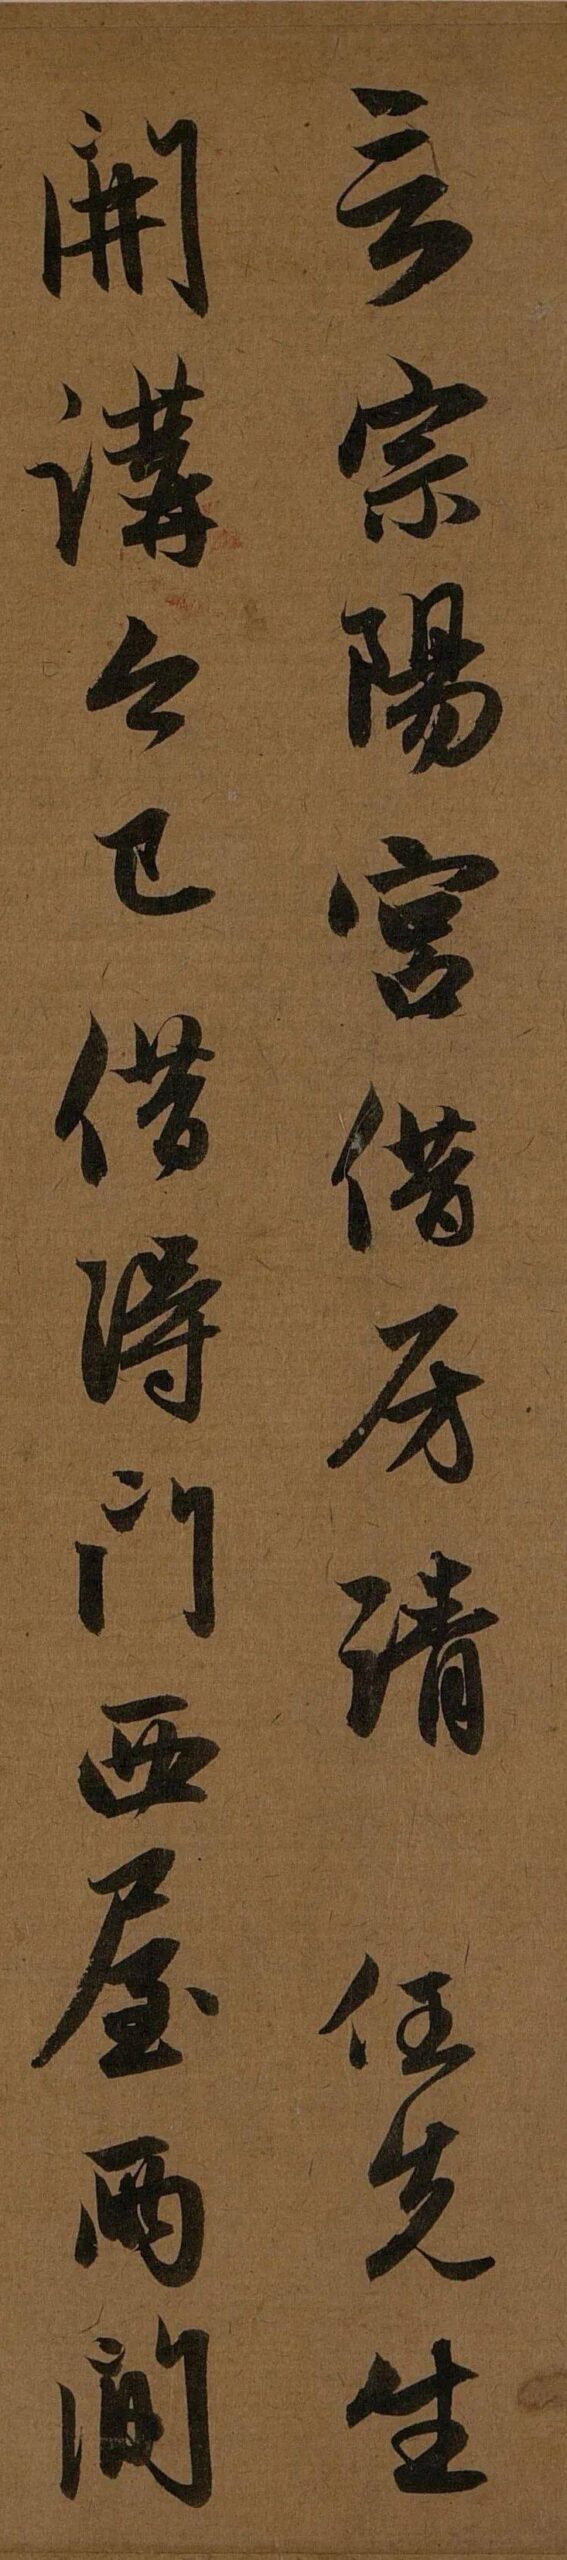 玄宗陽宮借房請 任先生
開講今已借得門西屋兩間